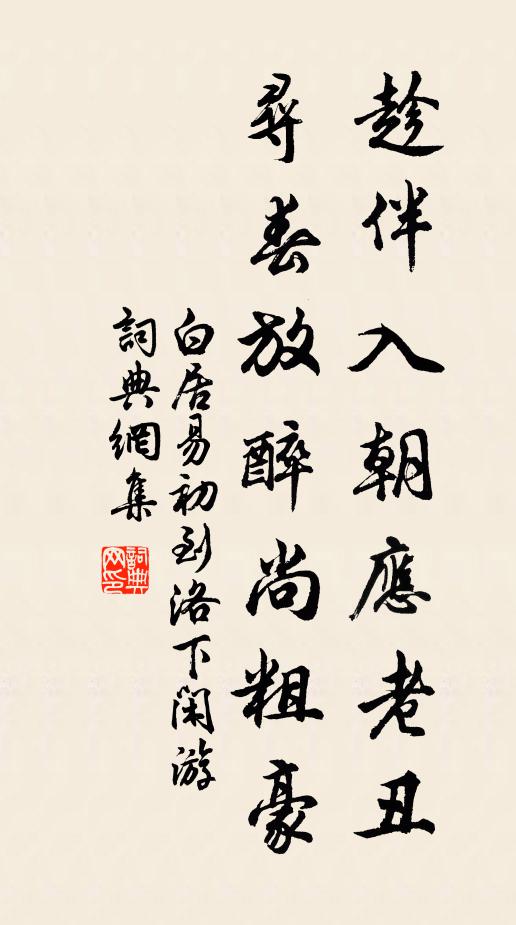 趁伴入朝應老丑
尋春放醉尚粗豪
白居易初到洛下閑游
詞典網集
詞典网印